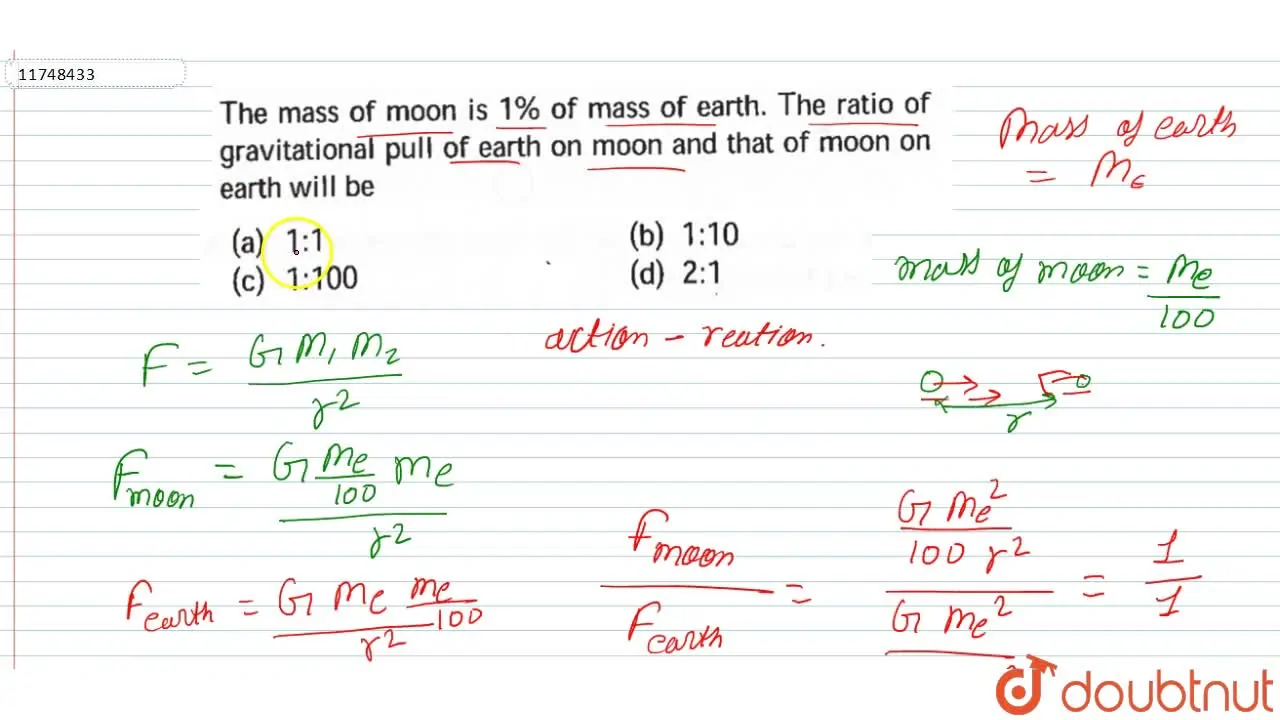 11748433
The mass of moon is 1% of mass of earth. The ratio of
gravitational pull of earth on moon and that of moon on
earth will be
(a) 1:1
(b) 1:10
(c) 1:100
(d) 2:1
Mass of earth
= Me
mass of moon = Me/100
action - reation.
F = G M1 M2 / r2
r
Fmoon = G Me/100 Me / r2
Fearth = G Me Me/100 / r2
Fmoon / Fearth = G Me2 / 100 r2 / G Me2 = 1/1
doubtnut